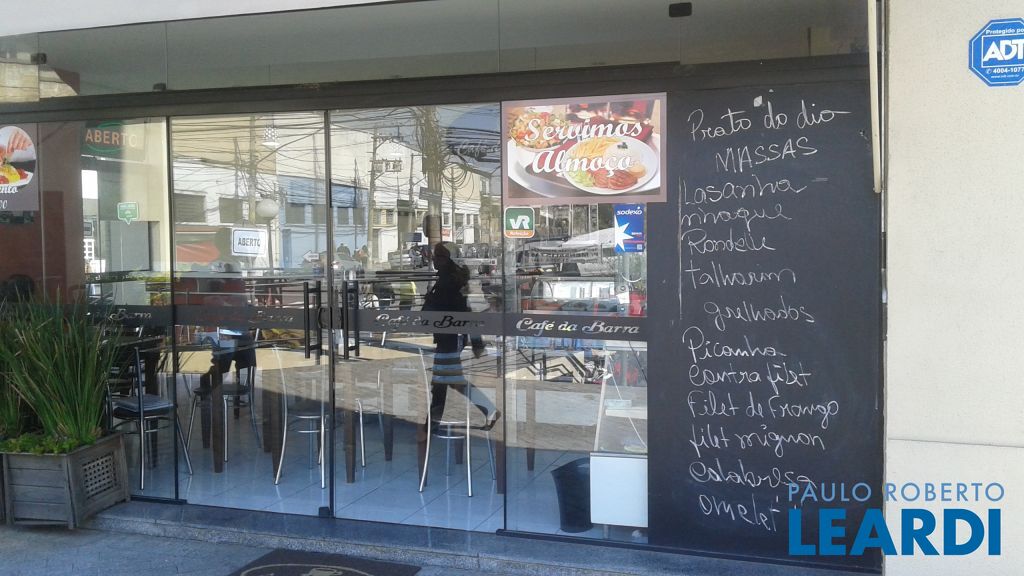 Protegido por
ADT
4004-1077
ABERTO
ABERTO
Servimos
Almoço
VR
Refeição
sodexo
Café da Barra
Café da Barra
Prato do dia
MASSAS
Lasanha
nhoque
Rondele
talharim
grelhados
Picanha
Contra filet
Filet de frango
filet mignon
Calabresa
omelet
PAULO ROBERTO
LEARDI